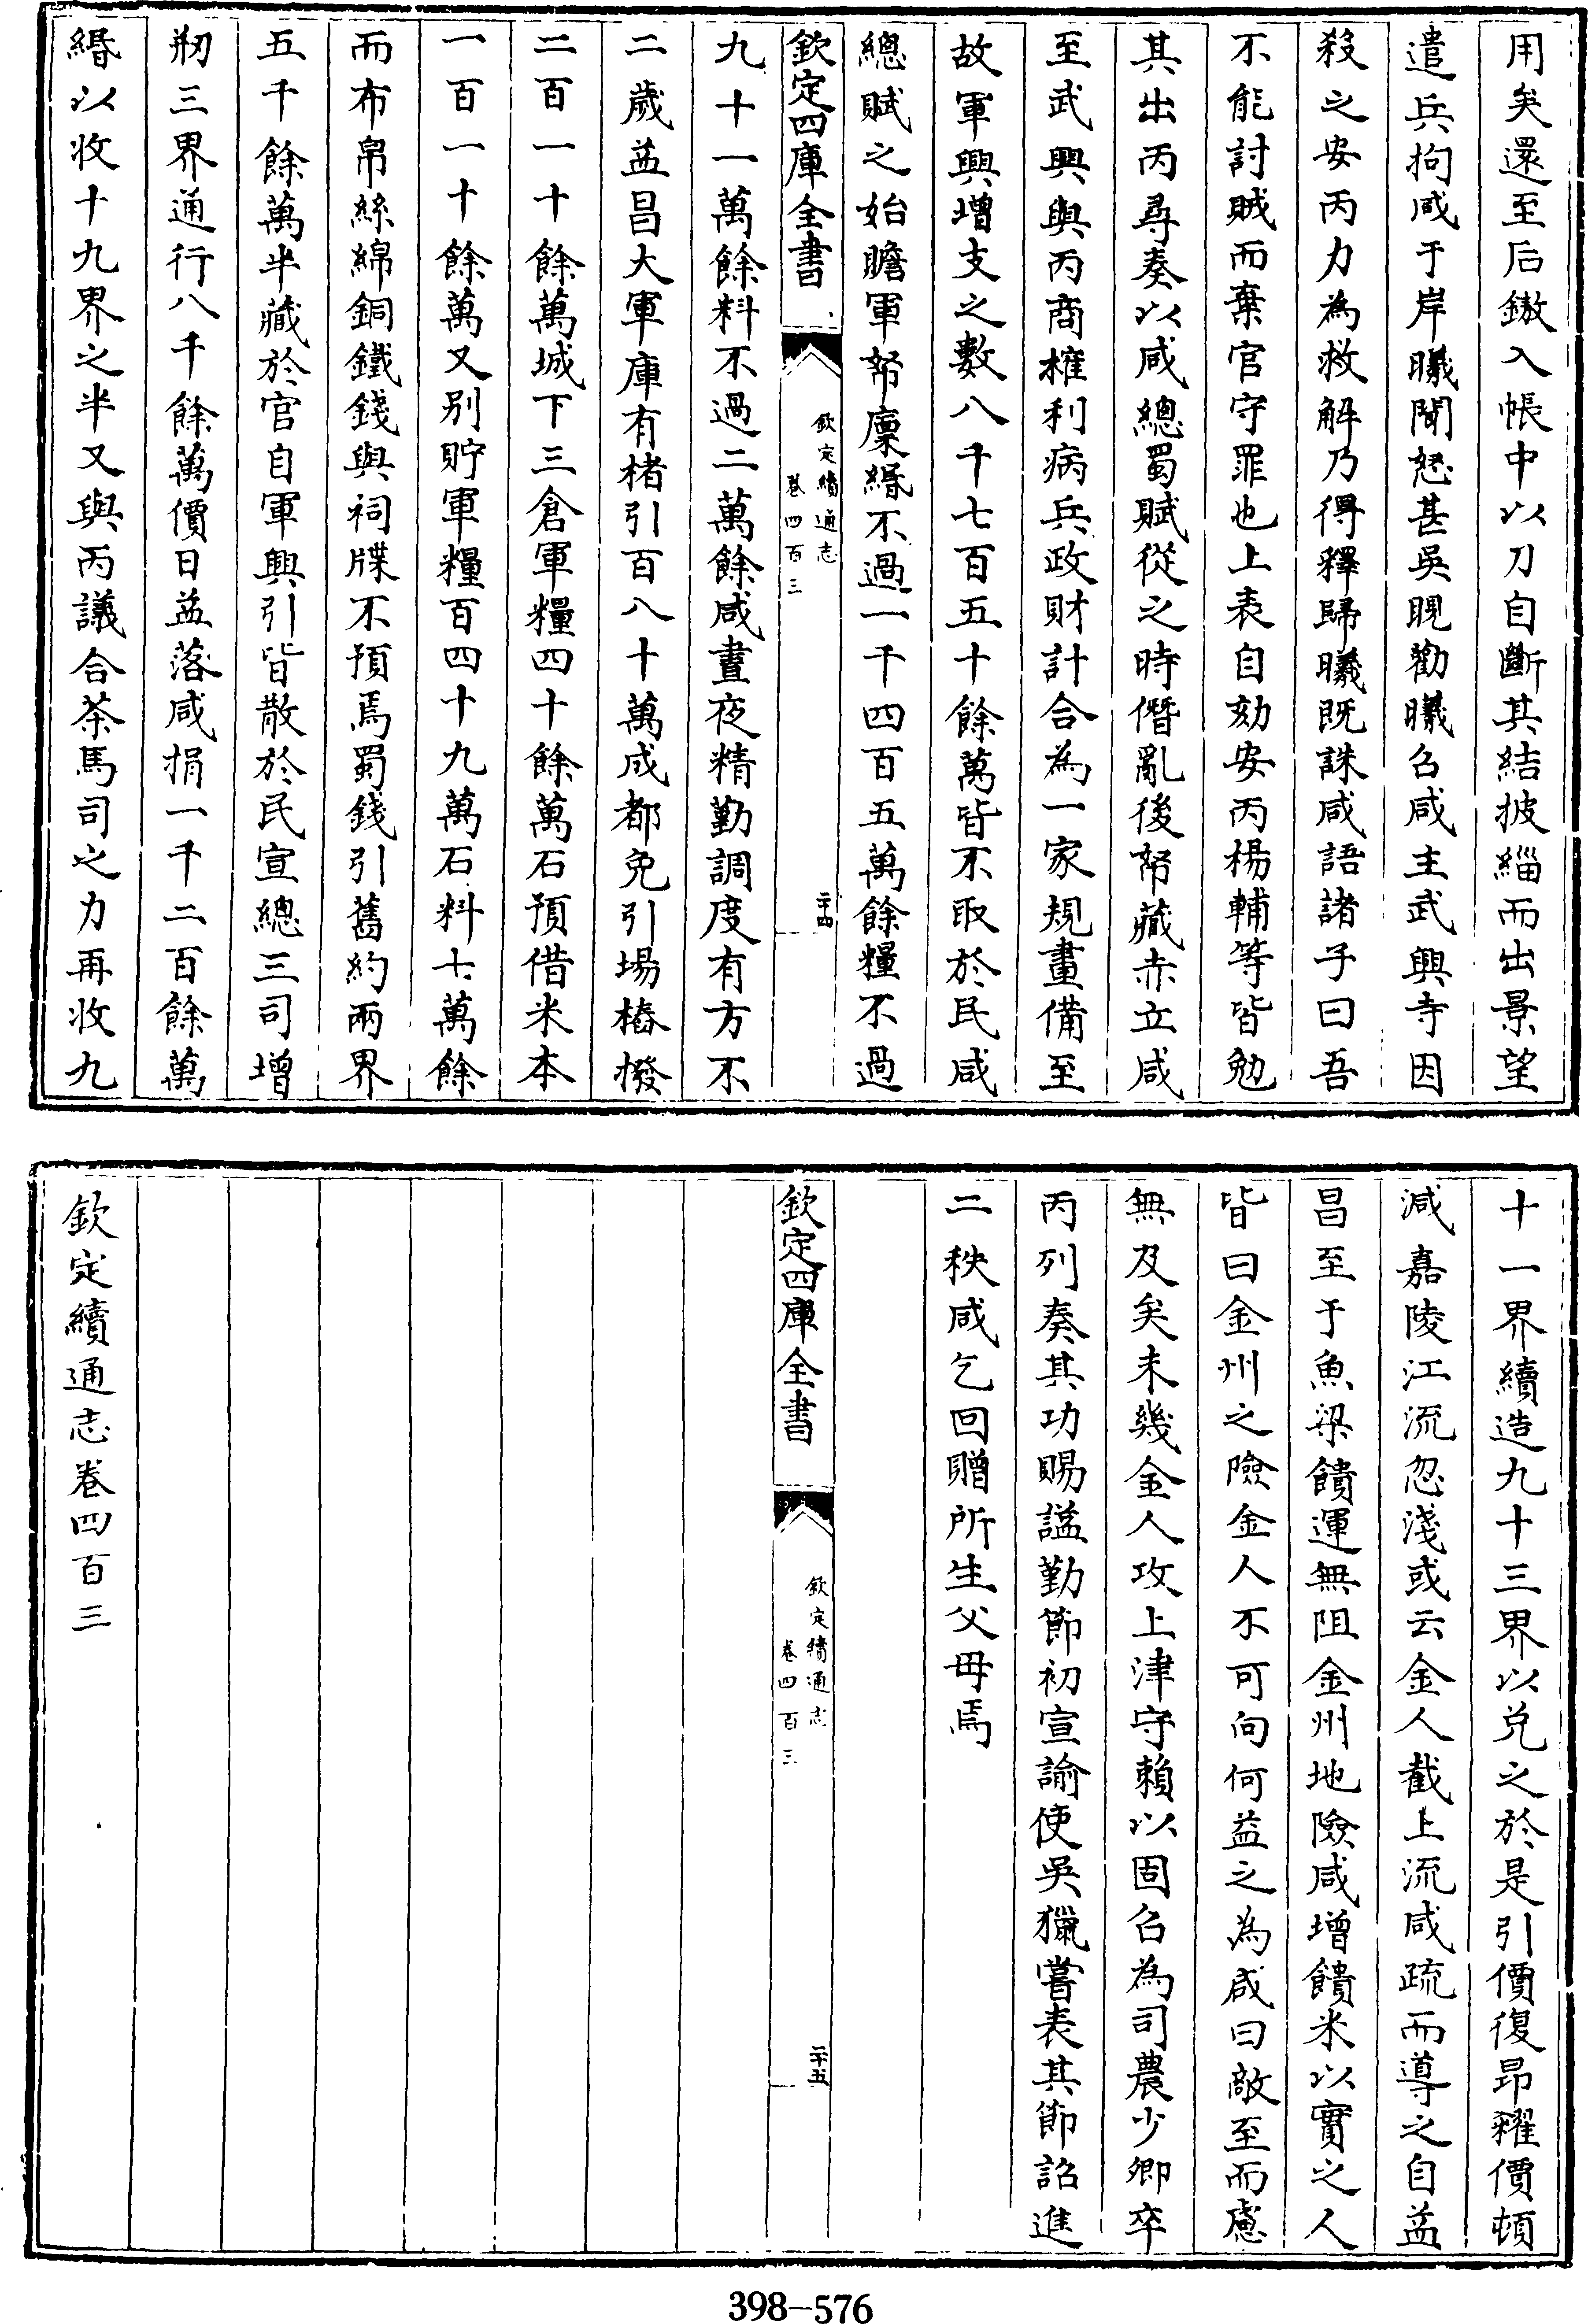 用矣還至后鏾入帳中以刀自斷其結披緇而出景望
遣兵拘咸于岸曦聞怒甚吳晛勸曦召咸主武興寺因
殺之安丙力為救解乃得釋歸曦既誅咸語諸子曰吾
不能討賊而棄官守罪也上表自劾安丙楊輔等皆勉
其出丙尋奏以咸總蜀賦從之時僭亂後帑藏赤立咸
至武興與丙商榷利病兵政財計合為一家規畫備至
故軍興增支之數八千七百五十餘萬皆不取於民咸
總賦之始贍軍帑廩緡不過一千四百五萬餘糧不過
欽定四庫全書
欽定續通志
卷四百三
二十四
九十一萬餘料不過二萬餘咸晝夜精勤調度有方不
二歲益昌大軍庫有楮引百八十萬成都免引場樁撥
二百一十餘萬城下三倉軍糧四十餘萬石預借米本
一百一十餘萬又別貯軍糧百四十九萬石料七萬餘
而布帛絲綿銅鐵錢與祠牒不預焉蜀錢引舊約兩界
五千餘萬半藏於官自軍興引皆散於民宣總三司增
剏三界通行八千餘萬價日益落咸捐一千二百餘萬
緡以收十九界之半又與丙議合茶馬司之力再收九
十一界續造九十三界以兌之於是引價復昂糴價頓
減嘉陵江流忽淺或云金人截上流咸疏而導之自益
昌至于魚梁饋運無阻金州地險咸增饋米以實之人
皆曰金州之險金人不可向何益之為咸曰敵至而慮
無及矣未幾金人攻上津守賴以固召為司農少卿卒
丙列奏其功賜謚勤節初宣諭使吳獵嘗表其節詔進
二秩咸乞回贈所生父母焉
欽定四庫全書
欽定續通志
卷四百三
二十五
欽定續通志卷四百三
398-576